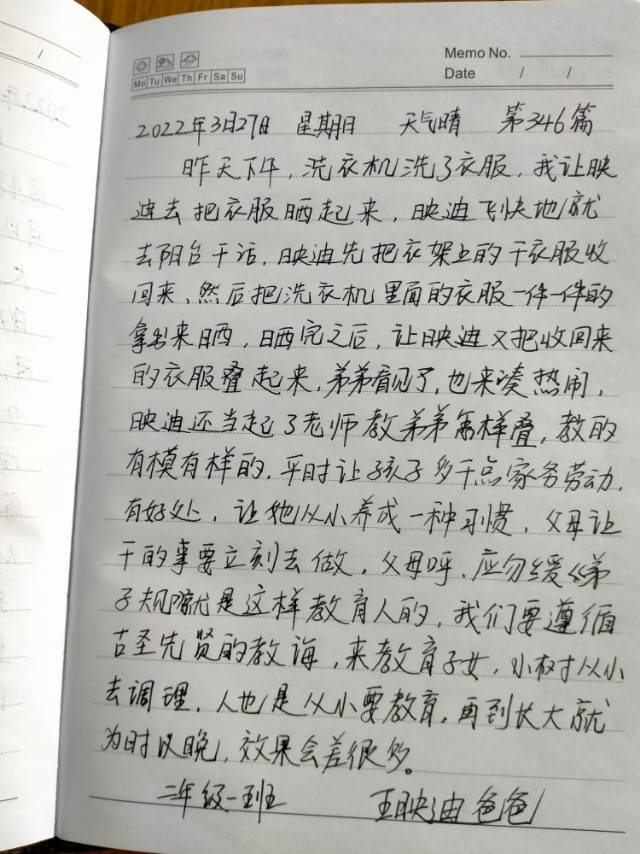 Memo No.
Mo Tu We Th Fr Sa Su
Date / /
2022年3月27日 星期日 天气晴 第346篇
昨天下午，洗衣机洗了衣服，我让映
迪去把衣服晒起来，映迪飞快地就
去阳台干活，映迪先把衣架上的干衣服收
回来，然后把洗衣机里面的衣服一件一件的
拿出来晒，晒完之后，让映迪又把收回来
的衣服叠起来，弟弟看见了，也来凑热闹，
映迪还当起了老师教弟弟怎样叠，教的
有模有样的，平时让孩子多干点家务劳动，
有好处，让她从小养成一种习惯，父母让
干的事要立刻去做，父母呼，应勿缓《弟
子规》就是这样教育人的，我们要遵循
古圣先贤的教诲，来教育子女，小树从小
去调理，人也是从小要教育，再到长大就
为时以晚，效果会差很多。
二年级一班 王映迪爸爸